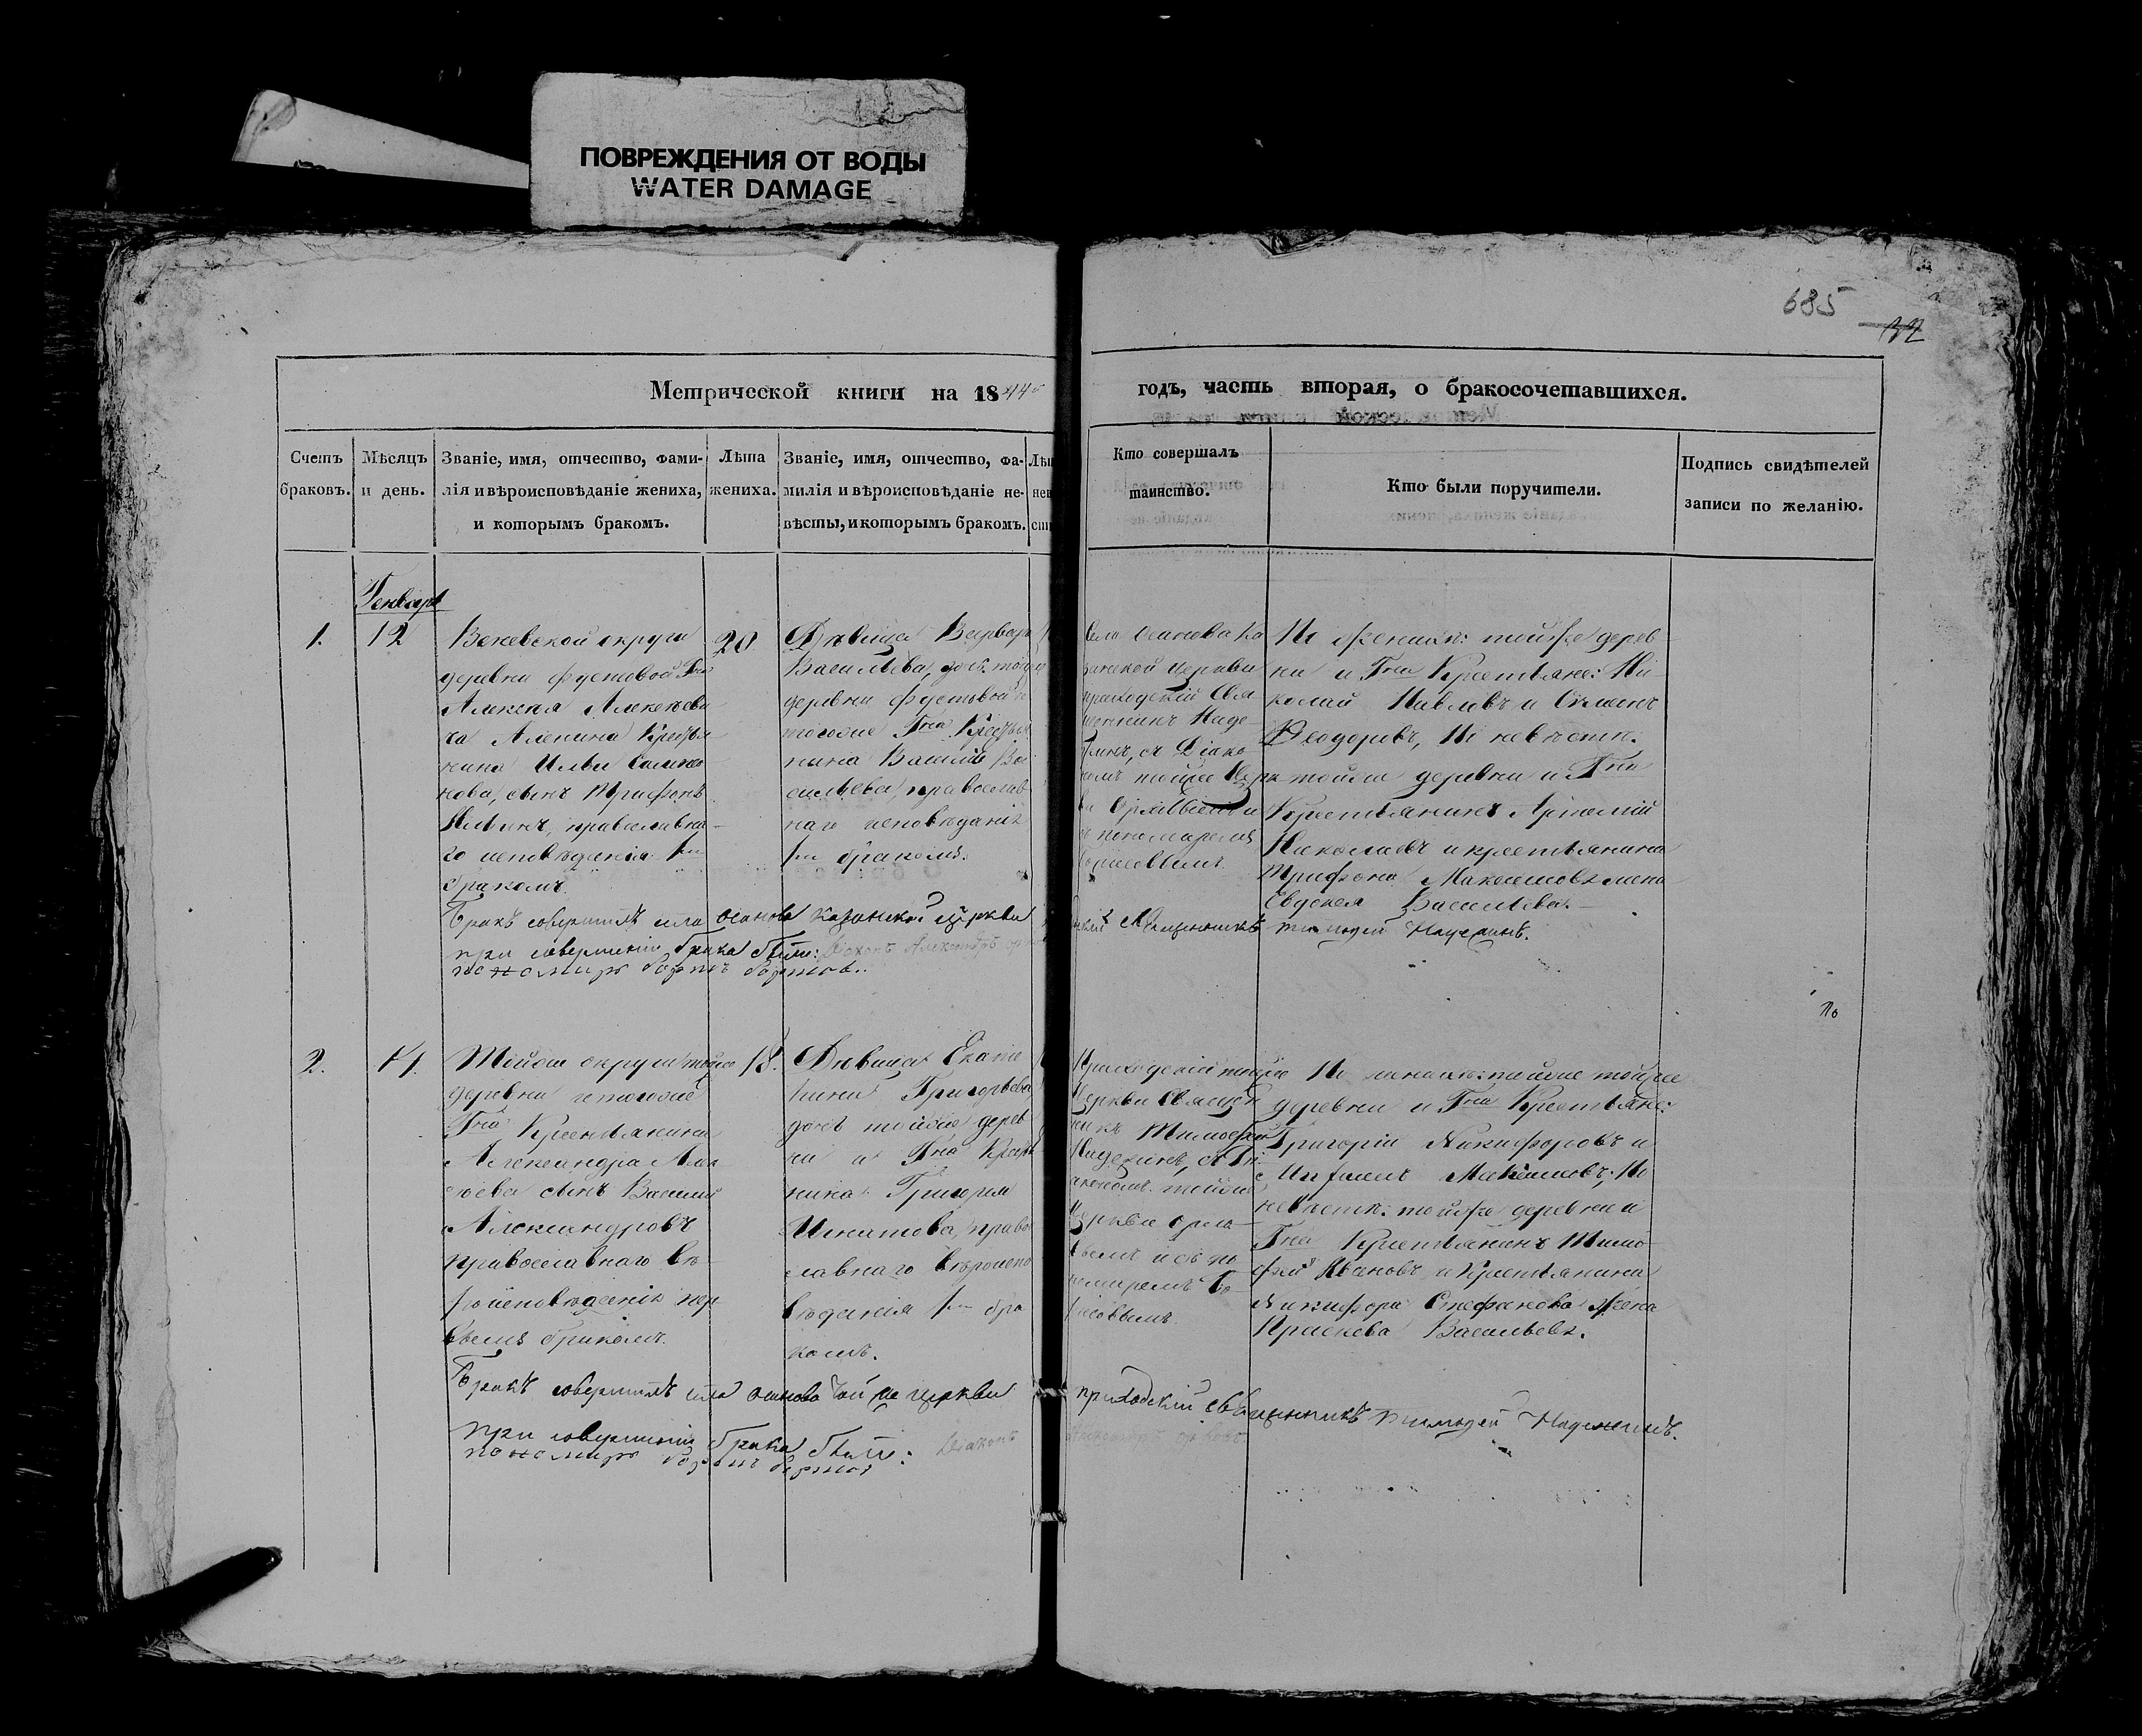 ПОВРЕЖДЕНИЯ ОТ ВОДЫ
WATER DAMAGE
685
Метрической книги на 1844
годъ, часть вторая, о бракосочетавшихся.
Счетъ
браковъ.
Мѣсяцъ
и день.
Званіе, имя, отчество, фами-
лія и вѣроисповѣданіе жениха,
и которымъ бракомъ.
Лѣта
жениха.
Званіе, имя, отчество, фа-
милія и вѣроисповѣданіе не-
вѣсты, и которымъ бракомъ.
Кто совершалъ
таинство.
Кто были поручители.
Подпись свидѣтелей
записи по желанію.
Генваря
1.
12
Веневской округи
деревни
Алексѣя Алексѣеви
ча Аленина Крестья
нина Ильи
сынъ Трифонъ
Ильинъ, православна-
го исповѣданія 1мъ
бракомъ.
20
Дѣвица Варвара
Васильева, дочь тойже
деревни
тогоже Гна Крестья
нина Василія Ва
сильева, православ-
наго исповѣданія
1мъ бракомъ.
Села Осанова Ка
занской церкви
приходскій Свя
щенникъ Наде
жинъ, съ Діако
номъ тойже Церк
ви Орловымъ и
съ пономаремъ
Борисовымъ.
По женихѣ: тойже дерев-
ни и Гна Крестьяне: Ни-
колай Павловъ и Симеонъ
Ѳеодоровъ, По невѣстѣ:
тойже деревни и Гна
Крестьянинъ Артемій
Николаевъ и крестьянина
Трифона Максимова жена
Евдокея Васильева.
Бракъ совершилъ села Осанова Казанской церкви
Священникъ Тимоѳей Надежинъ.
при совершеніи брака были: Діаконъ Александръ
пономарь Борисъ Борисовъ.
2.
Тойже округи тойже
деревни и тогоже
Гна Крестьянина
Александра Алек
сѣева сынъ Василій
Александровъ
православнаго вѣ-
роисповѣданія пер
вымъ бракомъ.
18.
Дѣвица Екате
рина Григорьева
дочь тойже дерев
ни и Гна Крестья
нина Григорія
Игнатова, право
славнаго вѣроиспо
вѣданія 1мъ бра
комъ.
Приходскій тойже
Церкви Священ
никъ Тимоѳей
Надежинъ, съ Ді
акономъ тойже
Церкви Орло-
вымъ и съ по
номаремъ Бо-
рисовымъ.
По женихѣ: тойже
деревни и Гна Крестьяне:
Григорій Никифоровъ и
Максимовъ; По
невѣстѣ: тойже деревни и
Гна Крестьянинъ Тимо-
фей Ивановъ и Крестьянина
Никифора Стефанова жена
Прасковья Васильева.
Бракъ совершилъ села Осанова той же церкви
приходскій священникъ Тимоѳей Надежинъ.
при совершеніи брака были: Діаконъ
пономарь Борисъ Борисовъ